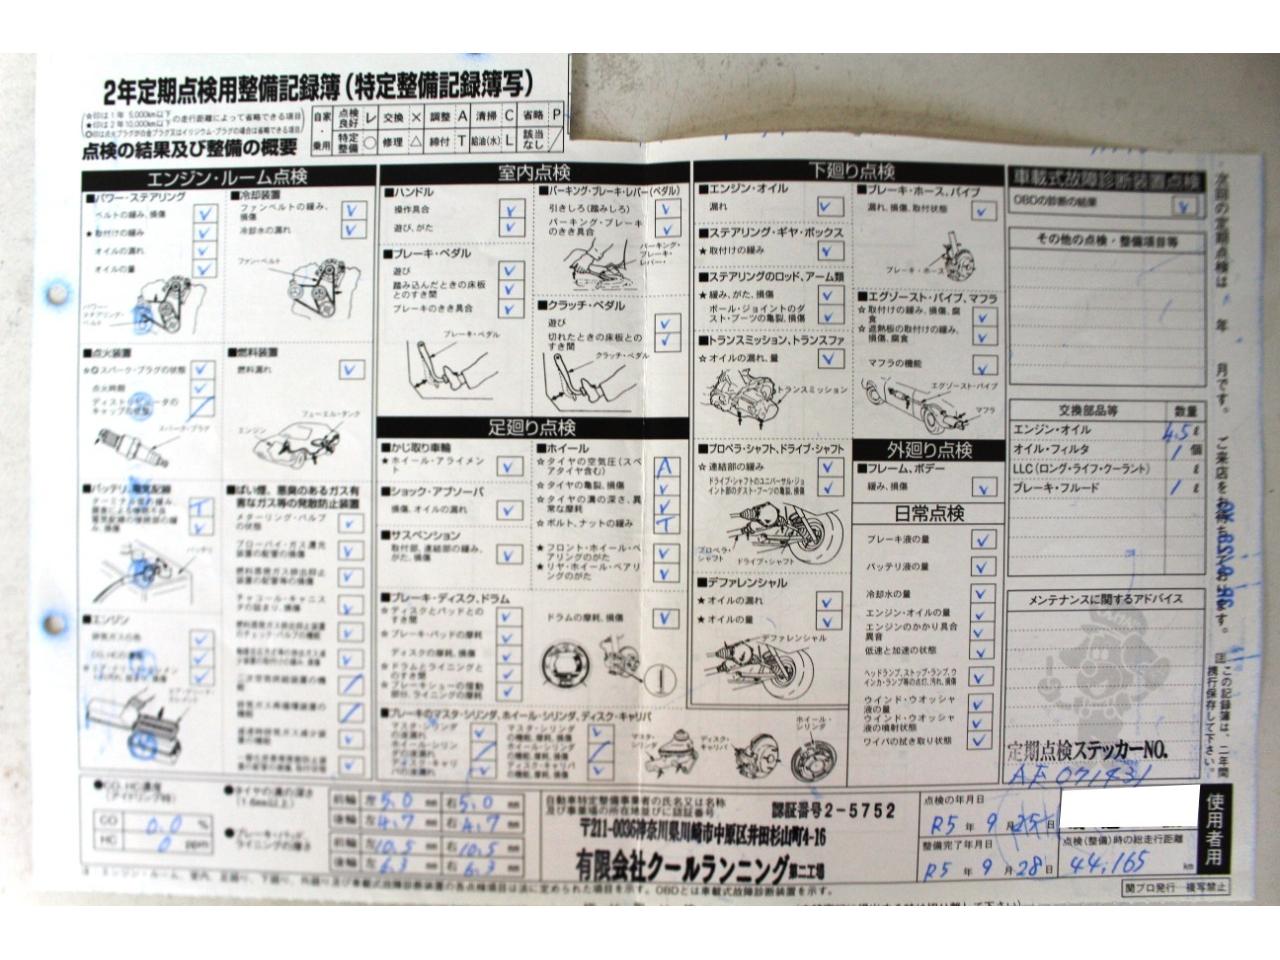 2年定期点検用整備記録簿(特定整備記録簿写)
☆印は1年 5,000km以下
★印は2年10,000km以下
の走行距離によって省略できる項目
点検の結果及び整備の概要
自家・乗用
点検良好 レ 交換 × 調整 A 清掃 C 省略 P
特定整備 ○ 修理 △ 締付 T 給油(水) L 該当なし /
エンジン・ルーム点検
■パワー・ステアリング
ベルトの緩み、損傷
★取付けの緩み
オイルの漏れ
オイルの量
パワー・ステアリング・ベルト
■冷却装置
ファンベルトの緩み、損傷
冷却水の漏れ
ファン・ベルト
■点火装置
スパーク・プラグの状態
点火時期
ディストリビュータのキャップの状態
スパーク・プラグ
■燃料装置
燃料漏れ
フューエル・タンク
エンジン
■バッテリ、電気配線
バッテリ
■ばい煙、悪臭のあるガス有害なガス等の発散防止装置
メターリング・バルブの状態
ブローバイ・ガス還元装置の配管の損傷
燃料蒸発ガス排出抑止装置の配管等の損傷
チャコール・キャニスタの詰まり、損傷
燃料蒸発ガス排出抑止装置のチェック・バルブの機能
二次空気供給装置の機能
■エンジン
排気ガスの色
CO、HCの濃度
室内点検
■ハンドル
操作具合
遊び、がた
■ブレーキ・ペダル
遊び
踏み込んだときの床板とのすき間
ブレーキのきき具合
ブレーキ・ペダル
■パーキング・ブレーキ・レバー(ペダル)
引きしろ(踏みしろ)
パーキング・ブレーキのきき具合
パーキング・ブレーキ・レバー
■クラッチ・ペダル
遊び
切れたときの床板とのすき間
クラッチ・ペダル
足廻り点検
■かじ取り車輪
★ホイール・アライメント
■ショック・アブソーバ
損傷、オイルの漏れ
■サスペンション
取付部、連結部の緩み、がた、損傷
■ホイール
☆タイヤの空気圧(スペアタイヤ含む)
☆タイヤの亀裂、損傷
☆タイヤの溝の深さ、異常な摩耗
☆ボルト、ナットの緩み
★フロント・ホイール・ベアリングのがた
★リヤ・ホイール・ベアリングのがた
■ブレーキ・ディスク、ドラム
☆ディスクとパッドとのすき間
☆ブレーキ・パッドの摩耗
ディスクの摩耗、損傷
☆ドラムとライニングとのすき間
☆ブレーキシューの摺動部分、ライニングの摩耗
ドラムの摩耗、損傷
■ブレーキのマスタ・シリンダ、ホイール・シリンダ、ディスク・キャリパ
マスタ・シリンダの液漏れ
ホイール・シリンダの液漏れ
ディスク・キャリパの液漏れ
マスタ・シリンダの機能、摩耗、損傷
ホイール・シリンダの機能、摩耗、損傷
ディスク・キャリパの機能、摩耗、損傷
マスタ・シリンダ
ディスク・キャリパ
ホイール・シリンダ
下廻り点検
■エンジン・オイル
漏れ
■ステアリング・ギヤ・ボックス
★取付けの緩み
■ステアリングのロッド、アーム類
★緩み、がた、損傷
ボール・ジョイントのダスト・ブーツの亀裂、損傷
■トランスミッション、トランスファ
☆オイルの漏れ、量
トランスミッション
■プロペラ・シャフト、ドライブ・シャフト
☆連結部の緩み
ドライブ・シャフトのユニバーサル・ジョイント部のダスト・ブーツの亀裂、損傷
プロペラ・シャフト
ドライブ・シャフト
■デファレンシャル
★オイルの漏れ
★オイルの量
デファレンシャル
■ブレーキ・ホース、パイプ
漏れ、損傷、取付状態
ブレーキ・ホース
■エグゾースト・パイプ、マフラ
☆取付けの緩み、損傷、腐食
☆遮熱板の取付けの緩み、損傷、腐食
マフラの機能
エグゾースト・パイプ
マフラ
外廻り点検
■フレーム、ボデー
緩み、損傷
日常点検
ブレーキ液の量
バッテリ液の量
冷却水の量
エンジン・オイルの量
エンジンのかかり具合異音
低速と加速の状態
ヘッドランプ、ストップ・ランプ、ウインカ・ランプ等の点灯、汚れ、損傷
ウインド・ウオッシャ液の量
ウインド・ウオッシャ液の噴射状態
ワイパの拭き取り状態
車載式故障診断装置点検
OBDの診断の結果
その他の点検・整備項目等
交換部品等 数量
エンジン・オイル 4.5 ℓ
オイル・フィルタ 1 個
LLC(ロング・ライフ・クーラント) ℓ
ブレーキ・フルード 1 ℓ
メンテナンスに関するアドバイス
定期点検ステッカーNO.
AF 071431
次回の定期点検は 年 月です。ご来店をお待ちしております。
注 この記録簿は、二年間携行保存して下さい。
●CO、HC濃度(アイドリング時)
CO 0.0 %
HC 0 ppm
●タイヤの溝の深さ(1.6mm以上)
前輪 左 5.0 mm 右 5.0 mm
後輪 左 4.7 mm 右 4.7 mm
●ブレーキ・パッド、ライニングの厚さ
前輪 左 10.5 mm 右 10.5 mm
後輪 左 6.3 mm 右 6.3 mm
自動車特定整備事業者の氏名又は名称及び事業場の所在地並びに認証番号 認証番号2-5752
〒211-0036神奈川県川崎市中原区井田杉山町4-16
有限会社クールランニング第二工場
点検の年月日
R5 年 9 月 25 日
整備完了年月日
R5 年 9 月 28 日
点検(整備)時の総走行距離
44,165 km
使用者用
注 エンジン・ルーム、室内、足廻り、下廻り、外廻り及び車載式故障診断装置の各点検項目は法に定められた項目を示す。OBDとは車載式故障診断装置を示す。
関プロ発行 複写禁止